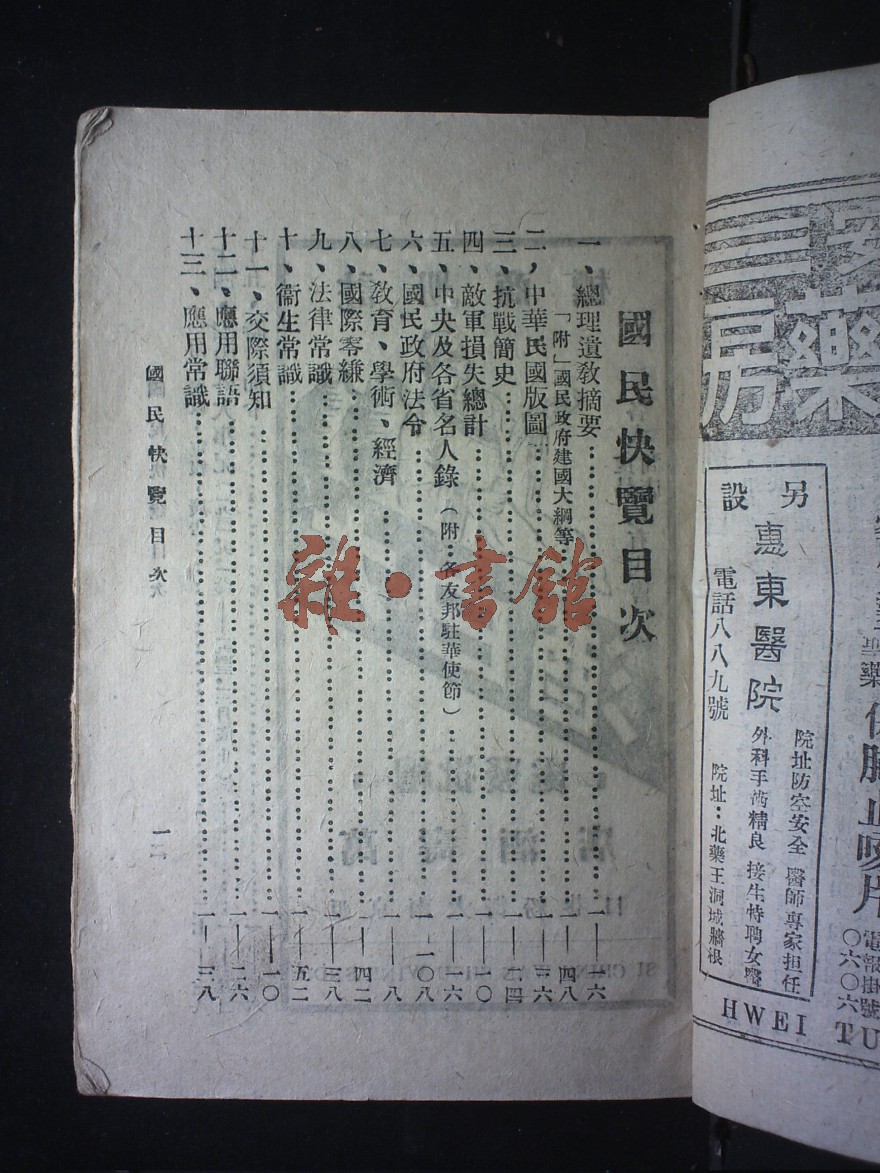 院址防空安全 醫師專家担任
外科手術精良 接生特聘女醫
另設
惠東醫院
電話八八九號
院址：北藥王洞城牆根
止咳片
電報掛號
〇六〇六
HWEI
TU
國民快覽目次
一、總理遺敎摘要……一—一六
「附」國民政府建國大綱等……一—四八
二，中華民國版圖……一—三六
三、抗戰簡史……一—二四
四、敵軍損失總計……一—一〇
五、中央及各省名人錄（附：各友邦駐華使節）……一—一六
六、國民政府法令……一—一〇八
七、敎育、學術、經濟……一—八
八、國際零縑……一—四二
九、法律常識……一—三八
十、衞生常識……一—五二
十一、交際須知……一—一〇
十二、應用聯語……一—二六
十三、應用常識……一—三八
國民快覽目次
一
雜·書館